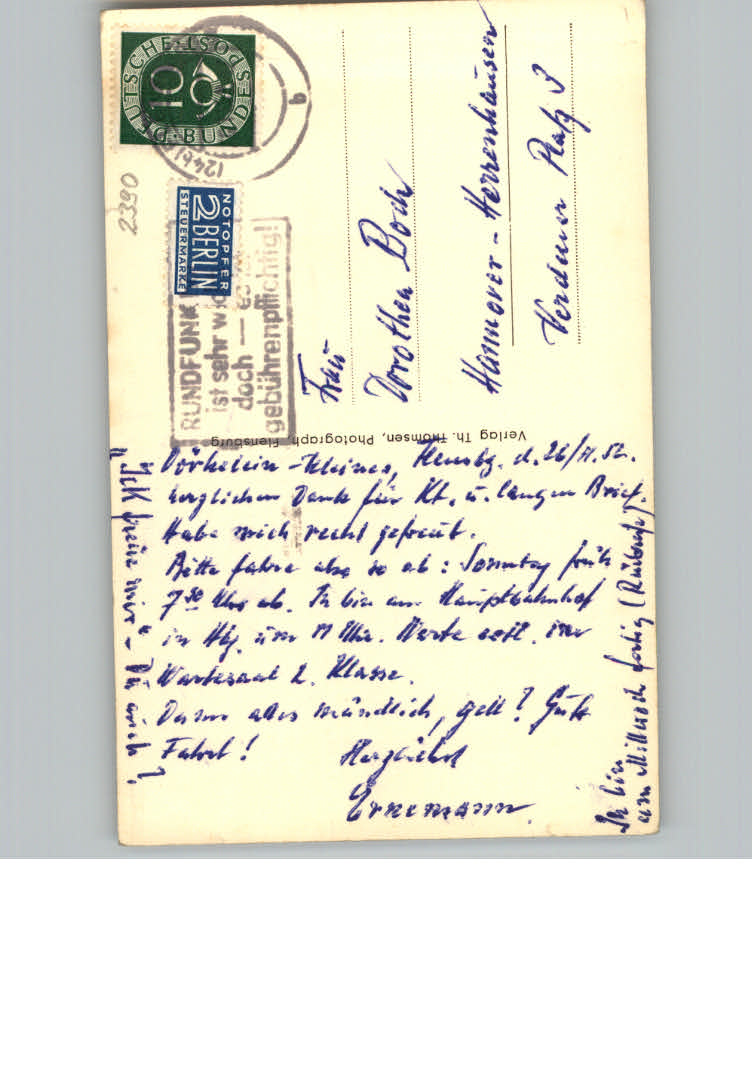 DEUTSCHE BUNDESPOST
10
(24b)
b
2390
NOTOPFER
2 BERLIN
STEUERMARKE
RUNDFUNK
ist sehr
doch —
gebührenpflichtig!
Frau
Dorothea Boch
Hannover-Herrenhausen
Verdener Platz 3
Verlag Th. Thomsen, Photograph, Flensburg
Kleines, Flensbg. d. 26/ 52.
herzlichen Dank für Kt. u. langen Brief.
Habe mich recht gefreut.
Bitte fahre also so ab: Sonntag früh
7 30 Uhr ab. Ich bin am Hauptbahnhof
in Hbg. um 11 Uhr. Warte evtl. im
Wartesaal 2. Klasse.
Dann alles mündlich, gell? Gute
Fahrt! Herzlichst
Ernemann.
"Ick freue mir" – Du auch?
Ich bin
am Mittwoch fertig